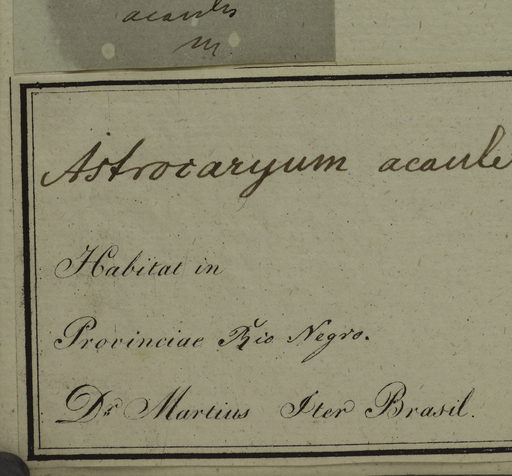 acaulis
m
Astrocaryum acaule
Habitat in
Provinciae Rio Negro.
Dr Martius Iter Brasil.